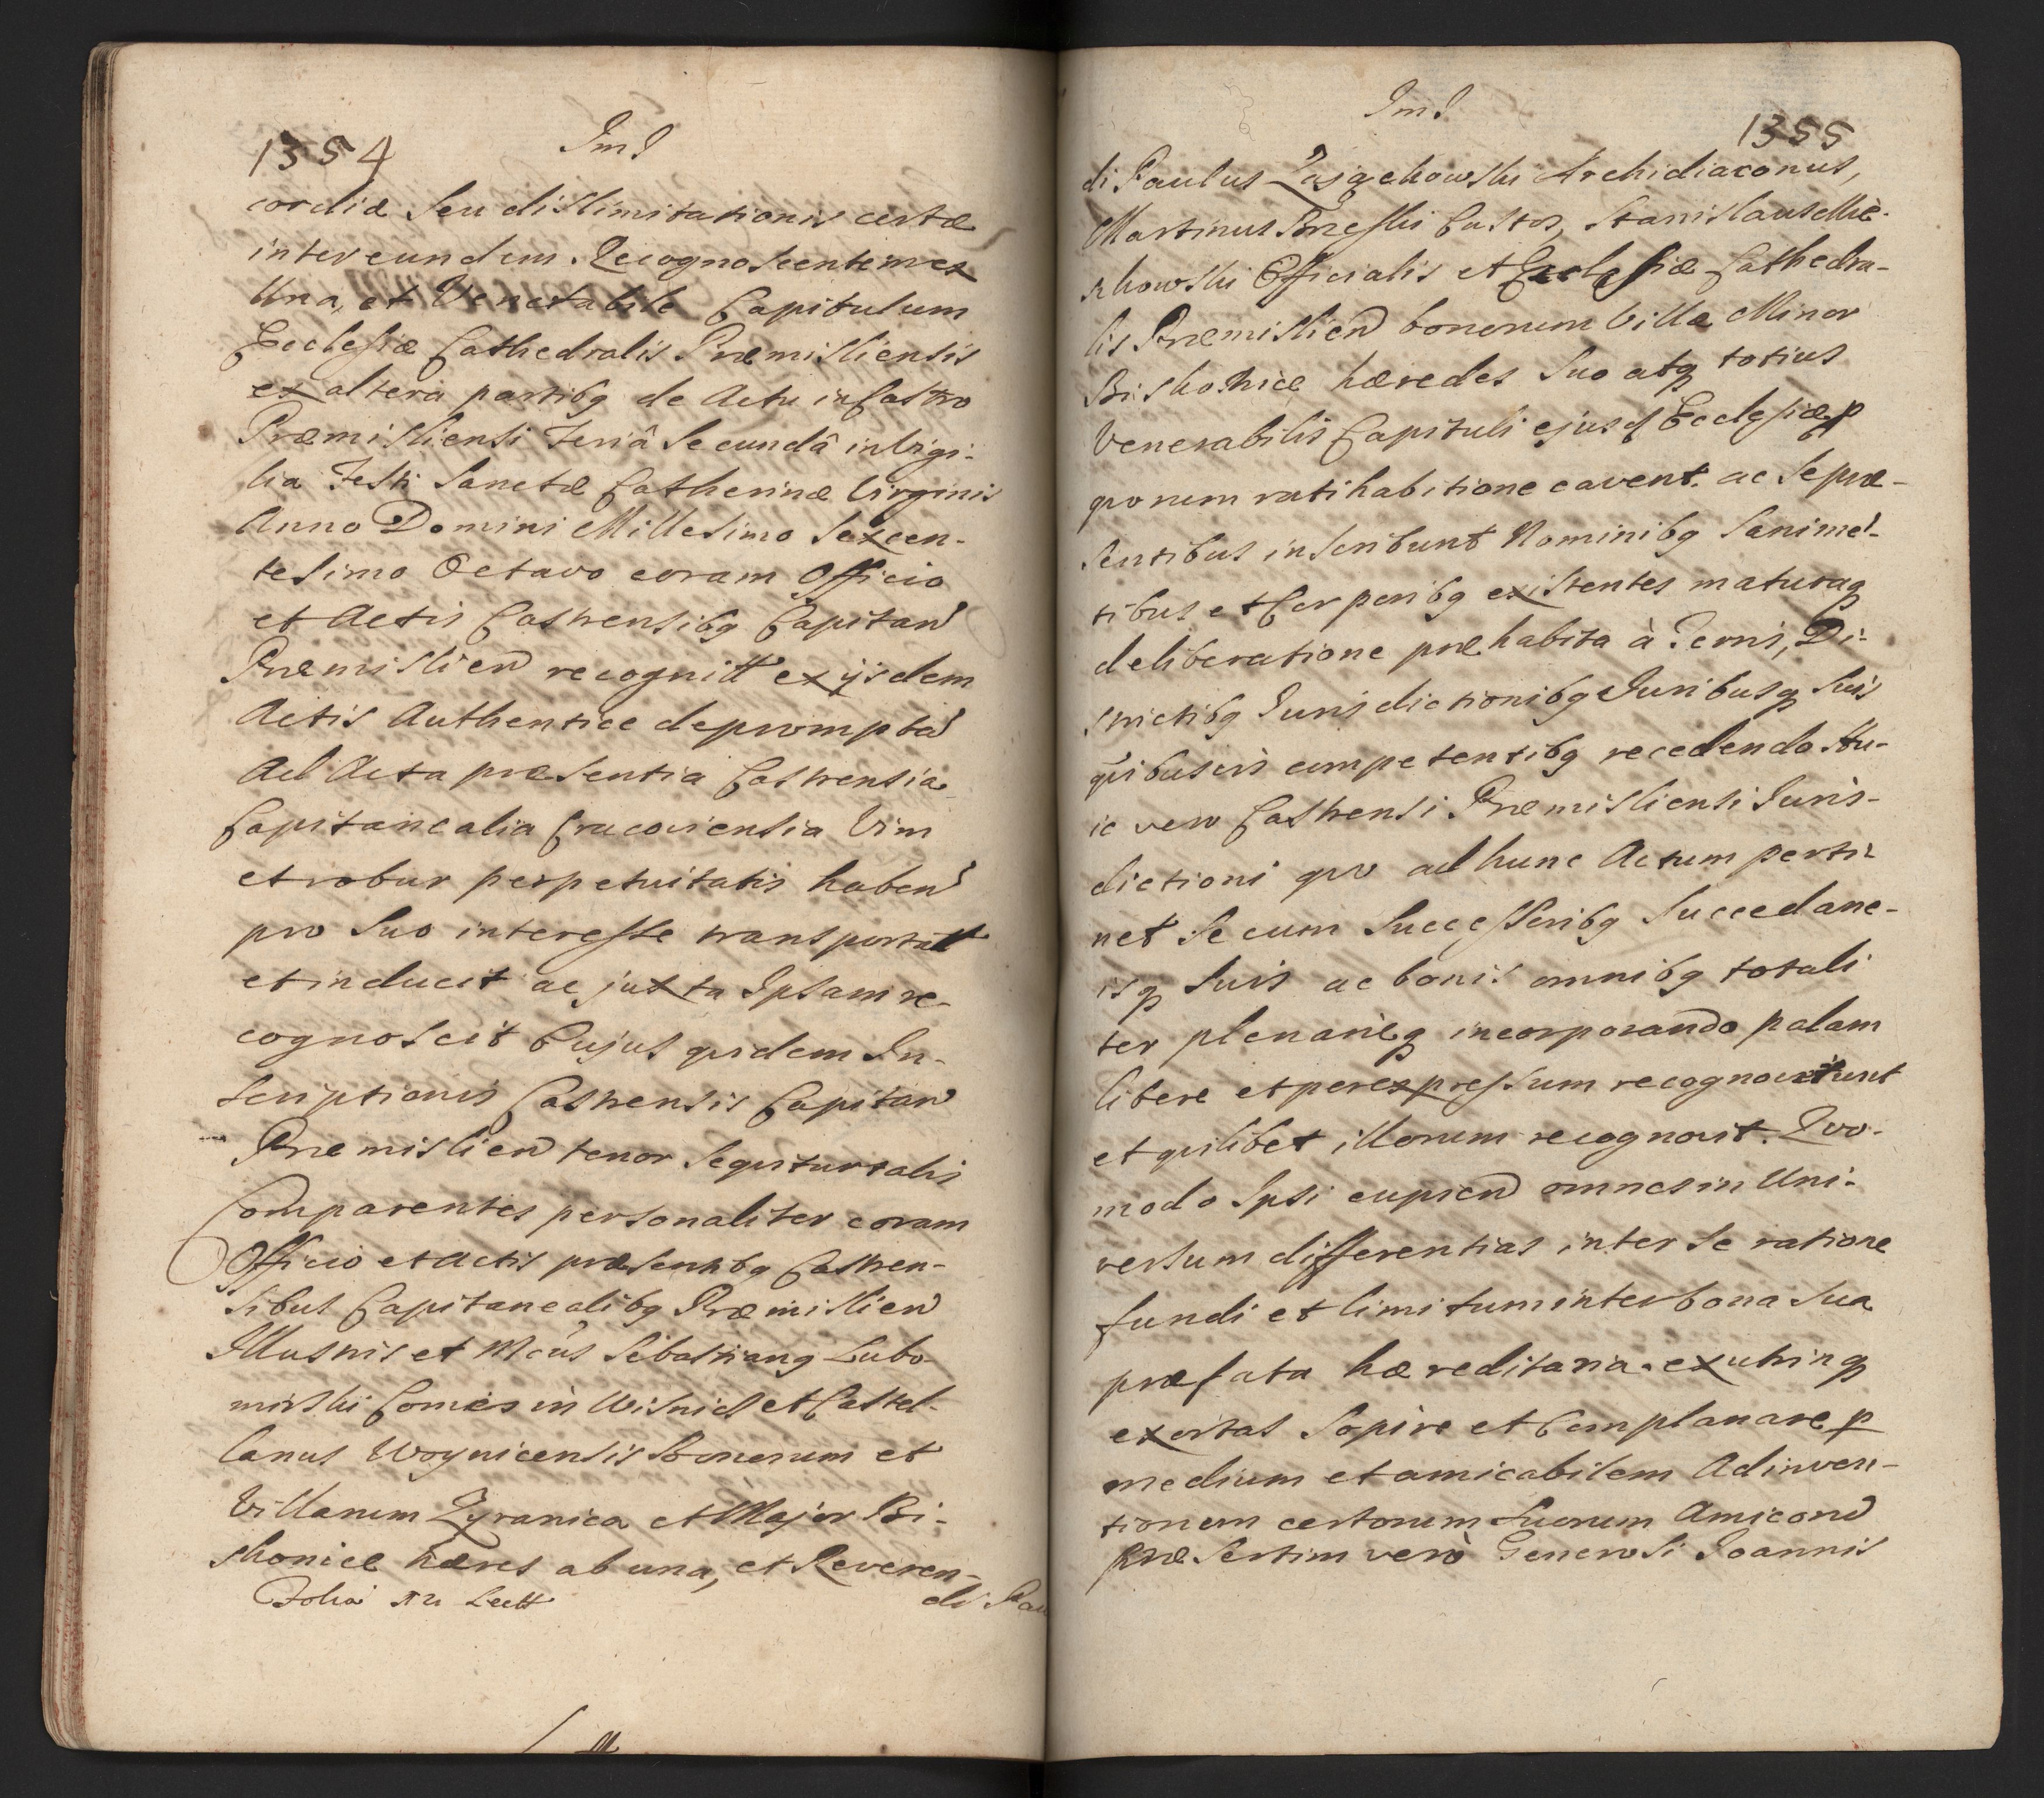 1354
Ind
cordiæ seu dislimitationis certæ
inter eundem Recognoscentem ex
Una, et Venerabile Capitulum
Ecclesiæ Cathedralis Præmisliensis
ex altera partibq de Actu in Castro
Præmisliensi Feriâ Secundâ in Vigi-
lia Festi Sanctæ Catherinæ Virginis
Anno Domini Millesimo Sexcen-
tesimo Octavo coram Officio
et Actis Castrensibq Capitan
Præmislien recognitt ex ijsdem
Actis Authentice deprompta
Ad Acta præsentia Castrensia
Capitanealia Cracoviensia Vim
et robur perpetuitatis haben
pro Suo interesse transportatt
et inducit ac juxta Ipsam re-
cognoscit Cujus quidem In-
scriptionis Castrensis Capitan
Præmislien tenor Sequitur talis
Comparentes personaliter coram
Officio et Actis præsentibq Castren-
sibus Capitanealibq Præmislien
Illustris et Mcus Sebastianq Lubo-
mirski Comes in Wisnicz et Castel-
lanus Woynicensis bonorum et
Villarum Zyranica et Major Bi-
skonice hæres ab una, et Reveren-
Folia Lectt
di Pau
1355
Ind
di Paulus Archidiaconus,
Martinus Custos, Stanislaus Mie-
chowski Officialis et Ecclesiæ Cathedra-
lis Præmislien bonorum Villæ Minor
Biskonice hæredes Suo atq totius
Venerabilis Capituli ejusd Ecclesiæ p
quorum ratihabitione cavent ac Se præ-
sentibus inscribunt Nominibq Sani men-
tibus et Corporibq existentes maturaq
deliberatione præhabita à Terris, Di-
strictibq Jurisdictionibq Juribusq Suis
quibusvis competentibq recedendo Hu-
ic vero Castrensi Præmisliensi Juris-
dictioni quo ad hunc Actum perti-
net Se cum Successoribq Succedane-
isq Suis ac bonis omnibq totali
ter plenarieq incorporando palam
libere et per expressum recognoverunt
et quilibet illorum recognovit. Quo-
modo Ipsi cupien omnes in Uni-
versum differentias inter Se ratione
fundi et limitum inter bona Sua
præfata hæreditaria ex utrinq
exortas Sopire et Complanare p
medium et amicabilem Adinven-
tionem certorum Suorum Amicor
præsertim verò Generosi Joannis